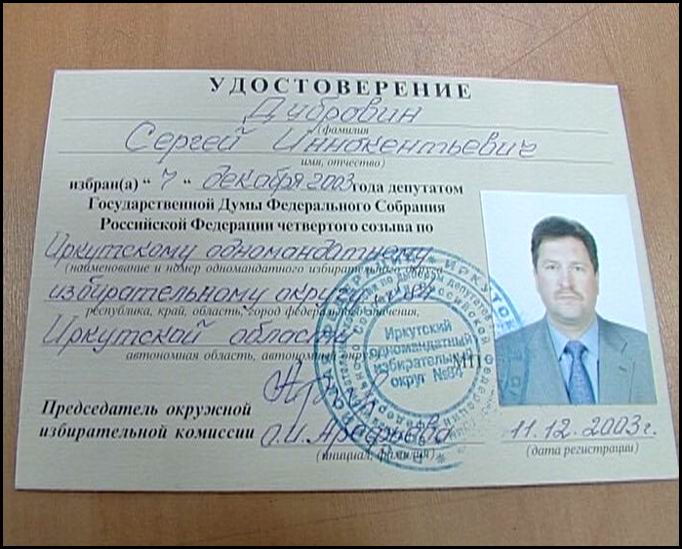 УДОСТОВЕРЕНИЕ
Дубровин
(фамилия
Сергей Иннокентьевич
имя, отчество)
избран(а) “ 7 “ декабря 2003 года депутатом
Государственной Думы Федерального Собрания
Российской Федерации четвертого созыва по
Иркутскому одномандатному
(наименование и номер одномандатного избирательного округа,
избирательному округу №84
республика, край, область, город федерального значения,
Иркутской области
автономная область, автономный округ)
Иркутский
одномандатный
избирательный
округ №84
МП
Председатель окружной
избирательной комиссии О.И. Арефьева
(инициал, фамилия)
11.12.2003 г.
(дата регистрации)